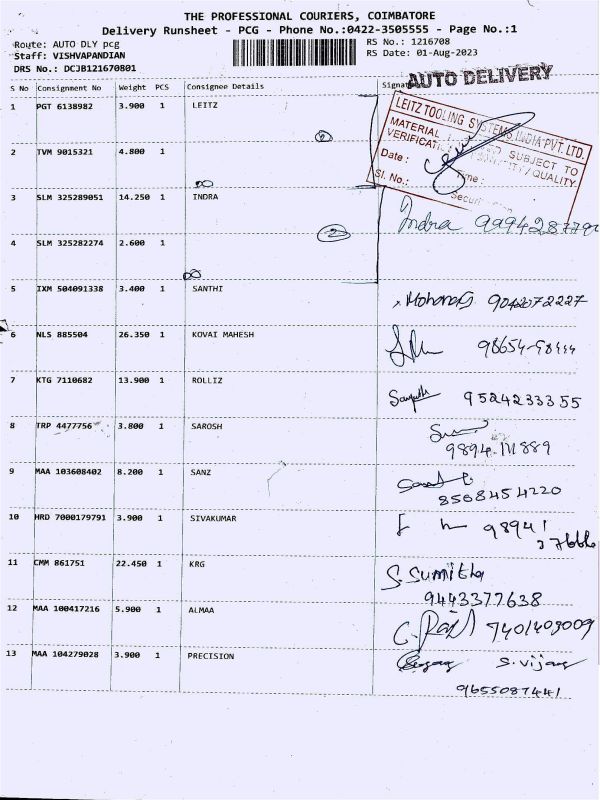 THE PROFESSIONAL COURIERS, COIMBATORE
Delivery Runsheet - PCG - Phone No.:0422-3505555 - Page No.:1
Route: AUTO DLY pcg RS No.: 1216708
Staff: VISHVAPANDIAN RS Date: 01-Aug-2023
DRS No.: DCJB121670801
AUTO DELIVERY
S No Consignment No Weight PCS Consignee Details
1 PGT 6138982 3.900 1 LEITZ
LEITZ TOOLING SYSTEMS INDIA PVT. LTD.
MATERIAL SUBJECT TO
QUALITY
Date :
Time :
Sl. No.:
2
2 TVM 9015321 4.800 1
3 SLM 325289051 14.250 1 INDRA
Indra
2
4 SLM 325282274 2.600 1
5 IXM 504091338 3.400 1 SANTHI
9042072227
6 NLS 885504 26.350 1 KOVAI MAHESH
7 KTG 7110682 13.900 1 ROLLIZ
9524233355
8 TRP 4477756 3.800 1 SAROSH
9894111889
9 MAA 103608402 8.200 1 SANZ
8508454220
10 HRD 7000179791 3.900 1 SIVAKUMAR
98941
11 CMM 861751 22.450 1 KRG
S. Sumitha
9443377638
12 MAA 100417216 5.900 1 ALMAA
7401409009
13 MAA 104279028 3.900 1 PRECISION
S. Vijay
9655087441